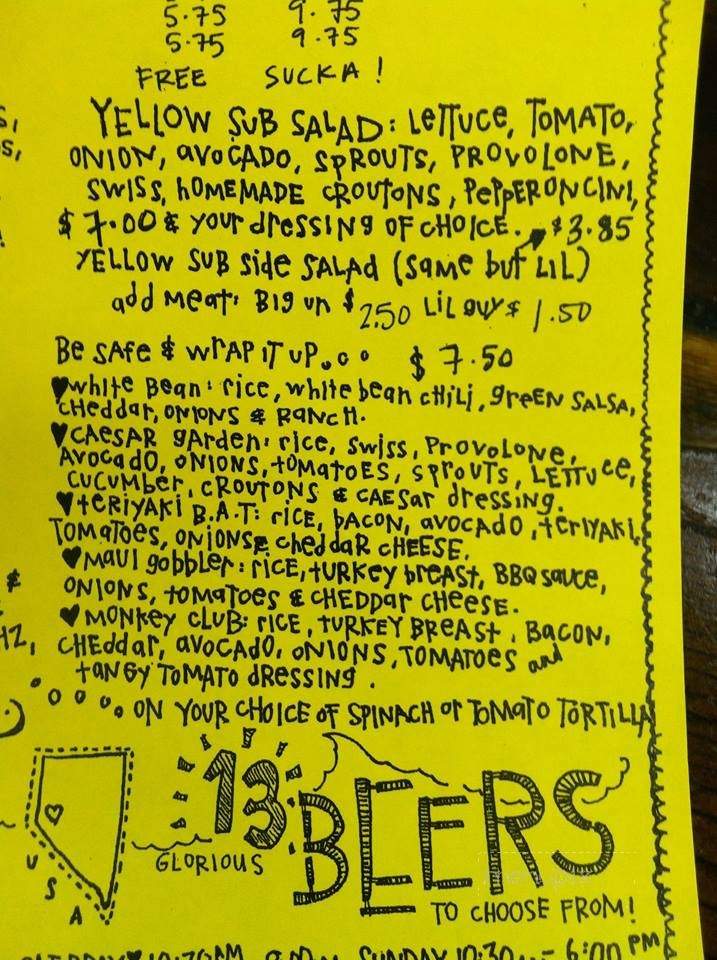 5.75 9.75
5.75 9.75
FREE SUCKA!
YELLOW SUB SALAD: LETTUCE, TOMATO,
ONION, AVOCADO, SPROUTS, PROVOLONE,
SWISS, HOMEMADE CROUTONS, PEPPERONCINI,
$7.00 & YOUR DRESSING OF CHOICE. $3.85
YELLOW SUB SIDE SALAD (SAME BUT LIL)
ADD MEAT: BIG UN $2.50 LIL GUY $1.50
BE SAFE & WRAP IT UP... $7.50
♥WHITE BEAN: RICE, WHITE BEAN CHILI, GREEN SALSA,
CHEDDAR, ONIONS & RANCH.
♥CAESAR GARDEN: RICE, SWISS, PROVOLONE,
AVOCADO, ONIONS, TOMATOES, SPROUTS, LETTUCE,
CUCUMBER, CROUTONS & CAESAR DRESSING.
♥TERIYAKI B.A.T: RICE, BACON, AVOCADO, TERIYAKI,
TOMATOES, ONIONS & CHEDDAR CHEESE.
♥MAUI GOBBLER: RICE, TURKEY BREAST, BBQ SAUCE,
ONIONS, TOMATOES & CHEDDAR CHEESE.
♥MONKEY CLUB: RICE, TURKEY BREAST, BACON,
CHEDDAR, AVOCADO, ONIONS, TOMATOES AND
TANGY TOMATO DRESSING.
ON YOUR CHOICE OF SPINACH OR TOMATO TORTILLA
USA
13
GLORIOUS
BEERS
TO CHOOSE FROM!
SUNDAY 10:30 - 6:00 PM